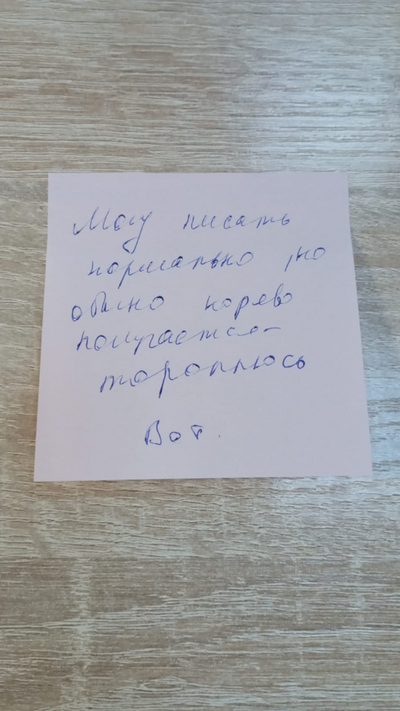 Могу писать
нормально, но
обычно корево
получается -
тороплюсь
Вот.